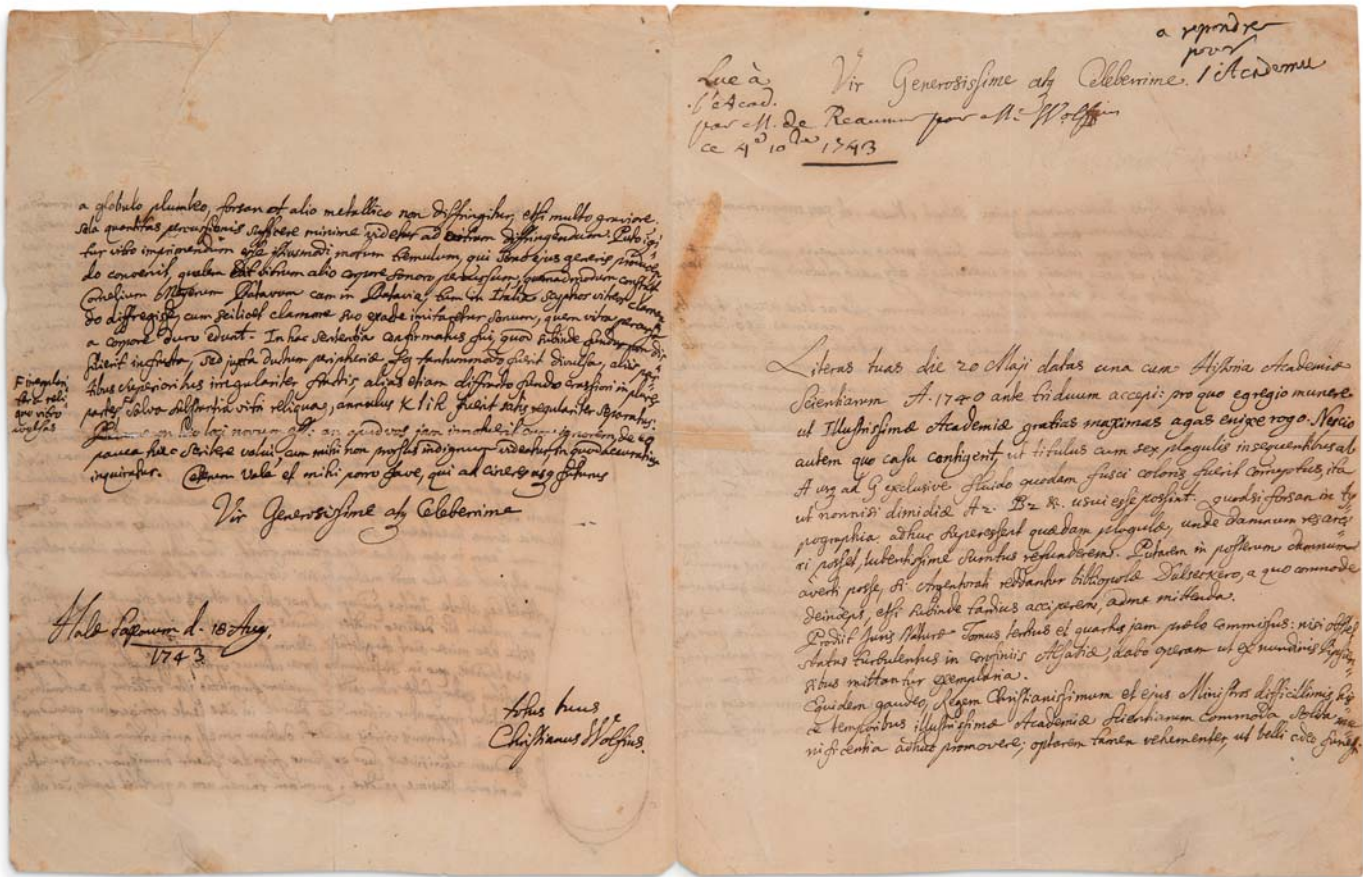 a globulo plumbeo, forsan et alio metallico non diffringitur, etsi multo graviore.
sola quantitas percussionis sufficere minime videtur ad vitrum diffringendum. Puto igi=
tur vitro imprimendum esse istiusmodi motum tremulum, qui sono ejus generis producen
do convenit, qualem dat vitrum alio corpore sonoro percussum, quemadmodum constat
Cornelium Meyerum Batavum cum in Batavia, tum in Italia scyphos vitreos claman
do diffregisse, cum scilicet clamore suo exacte imitaretur sonum, quem vitra percussa
a corpore duro edunt. In hac sententia confirmatus fui, quod subinde fundus non di
fuerit infractus, sed juxta ductum peripheriæ fg tantummodo fuerit divulsus, aliis par=
tibus superioribus irregulariter fractis, alias etiam diffracto fundo crassiori in plures
partes F salva substantia vitri reliqua, annulus KIiR fuerit satis regulariter separatus
F irregulari
ter a reli
quo vitro
avulsas
pauca hæc scribere volui, cum mihi non prorsus indignum videatur in quod accuratius
inquiratur. Ceterum Vale et mihi porro fave, qui ad cineres usq futurus
Vir Generosissime atq Celeberrime
Halæ Saxonum d. 18 Aug.
1743.
totus tuus
Christianus Wolfius.
a repondre
pour
l'Academie
Lue à
l'Acad.
par M. de Reaumur pour Mr. Wolfius
ce 4e 10bre 1743
Vir Generosissime atq Celeberrime.
Literas tuas die 20 Maji datas una cum Historia Academiæ
Scientiarum A. 1740 ante triduum accepi: pro quo egregio munere
ut Illustrissimæ Academiæ gratias maximas agas enixe rogo. Nescio
autem quo casu contigerit, ut titulus cum sex plagulis insequentibus ab
A usq ad G exclusive fluido quodam fusci coloris fuerit corruptus, ita
ut nonnisi dimidiæ A2. B2 &. usui esse possint. quodsi forsan in ty
pographia adhuc superessent quædam plagulæ, unde damnum resarci=
ri posset, lubentissime sumtus refunderem. Putarem in posterum damnum
averti posse, si Argentorati reddantur bibliopolæ Dulseckero, a quo commode
deinceps, etsi subinde tardius acciperem, ad me mittenda.
Prodiit Juris Naturæ Tomus tertius et quartus jam prælo commissus: nisi obstet
status turbulentus in confiniis Alsatiæ, dabo operam ut ex nundinis Lipsien=
sibus mittantur exemplaria.
Equidem gaudeo, Regem Christianissimum et ejus Ministros difficillimis his
ce temporibus illustrissimæ Academiæ Scientiarum commoda solita mu
nificentia adhuc promovere; optarem tamen vehementer, ut belli adeo funesti